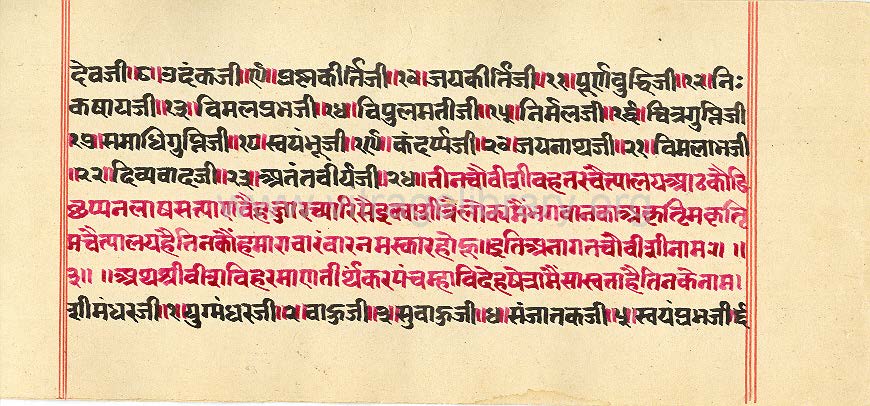 देवजी॥८॥उदंकजी॥९॥प्रश्नकीर्तिजी॥१०॥जयकीर्तिजी॥११॥पूर्णबुद्धिजी॥१२॥निः
कषायजी॥१३॥विमलप्रभजी॥१४॥विपुलमतीजी॥१५॥निर्मलजी॥१६॥चित्रगुप्तिजी
१७॥समाधिगुप्तिजी॥१८॥स्वयंभूजी॥१९॥कंदर्प्पजी॥२०॥जयनाथजी॥२१॥विमलाभजी
॥२२॥दिव्यवादजी॥२३॥अनंतवीर्यजी॥२४॥तीनचौवीशीवहतरचैत्यालयआठकौडि
छप्पनलाषसत्याणवै च्यारिसै त्रैलाक्यमैभगवानकाअकृतिमकृति
मचैत्यालयहैतिनकौंहमारावारंवारनमस्कारहोऊ॥इतिअनागतचौवीशीनाम२॥॥
३॥॥अथश्रीवीशविहरमाणतीर्थंकरपंचम्हाविदेहषेत्रांमैसास्वताहैतिनकेनाम।
शीमंधरजी॥१॥युग्मंधरजी॥२॥वाहुजी॥३॥सुवाहुजी॥४॥संजातकजी॥५॥स्वयंप्रभजी६